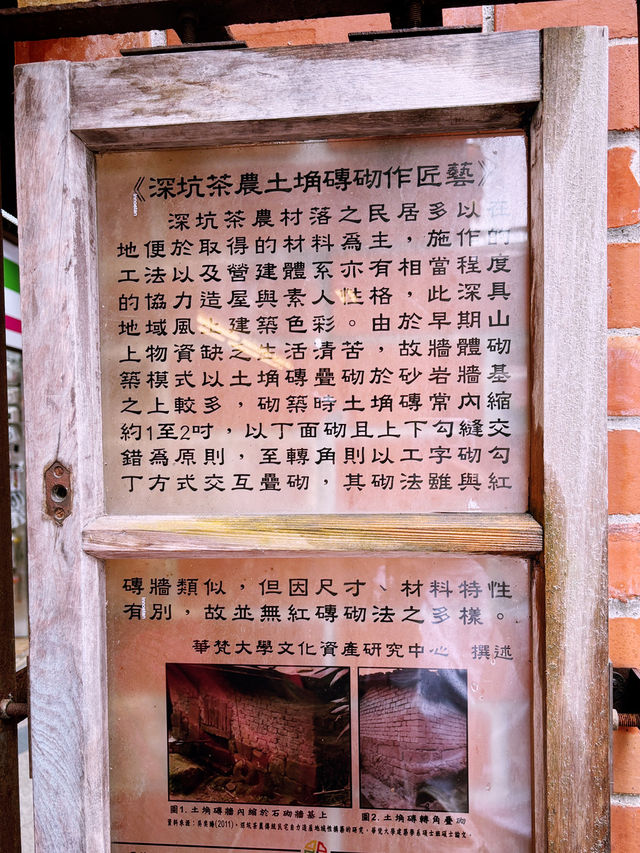 《深坑茶農土埆磚砌作匠藝》
深坑茶農村落之民居多以在
地便於取得的材料為主,施作的
工法以及營建體系亦有相當程度
的協力造屋與素人性格,此深具
地域風土建築色彩。由於早期山
上物資缺乏生活清苦,故牆體砌
築模式以土埆磚疊砌於砂岩牆基
之上較多,砌築時土埆磚常內縮
約1至2吋,以丁面砌且上下勾縫交
錯為原則,至轉角則以工字砌勾
丁方式交互疊砌,其砌法雖與紅
磚牆類似,但因尺寸、材料特性
有別,故並無紅磚砌法之多樣。
華梵大學文化資產研究中心 撰述
圖1. 土埆磚牆內縮於石砌牆基上
圖2. 土埆磚轉角疊砌